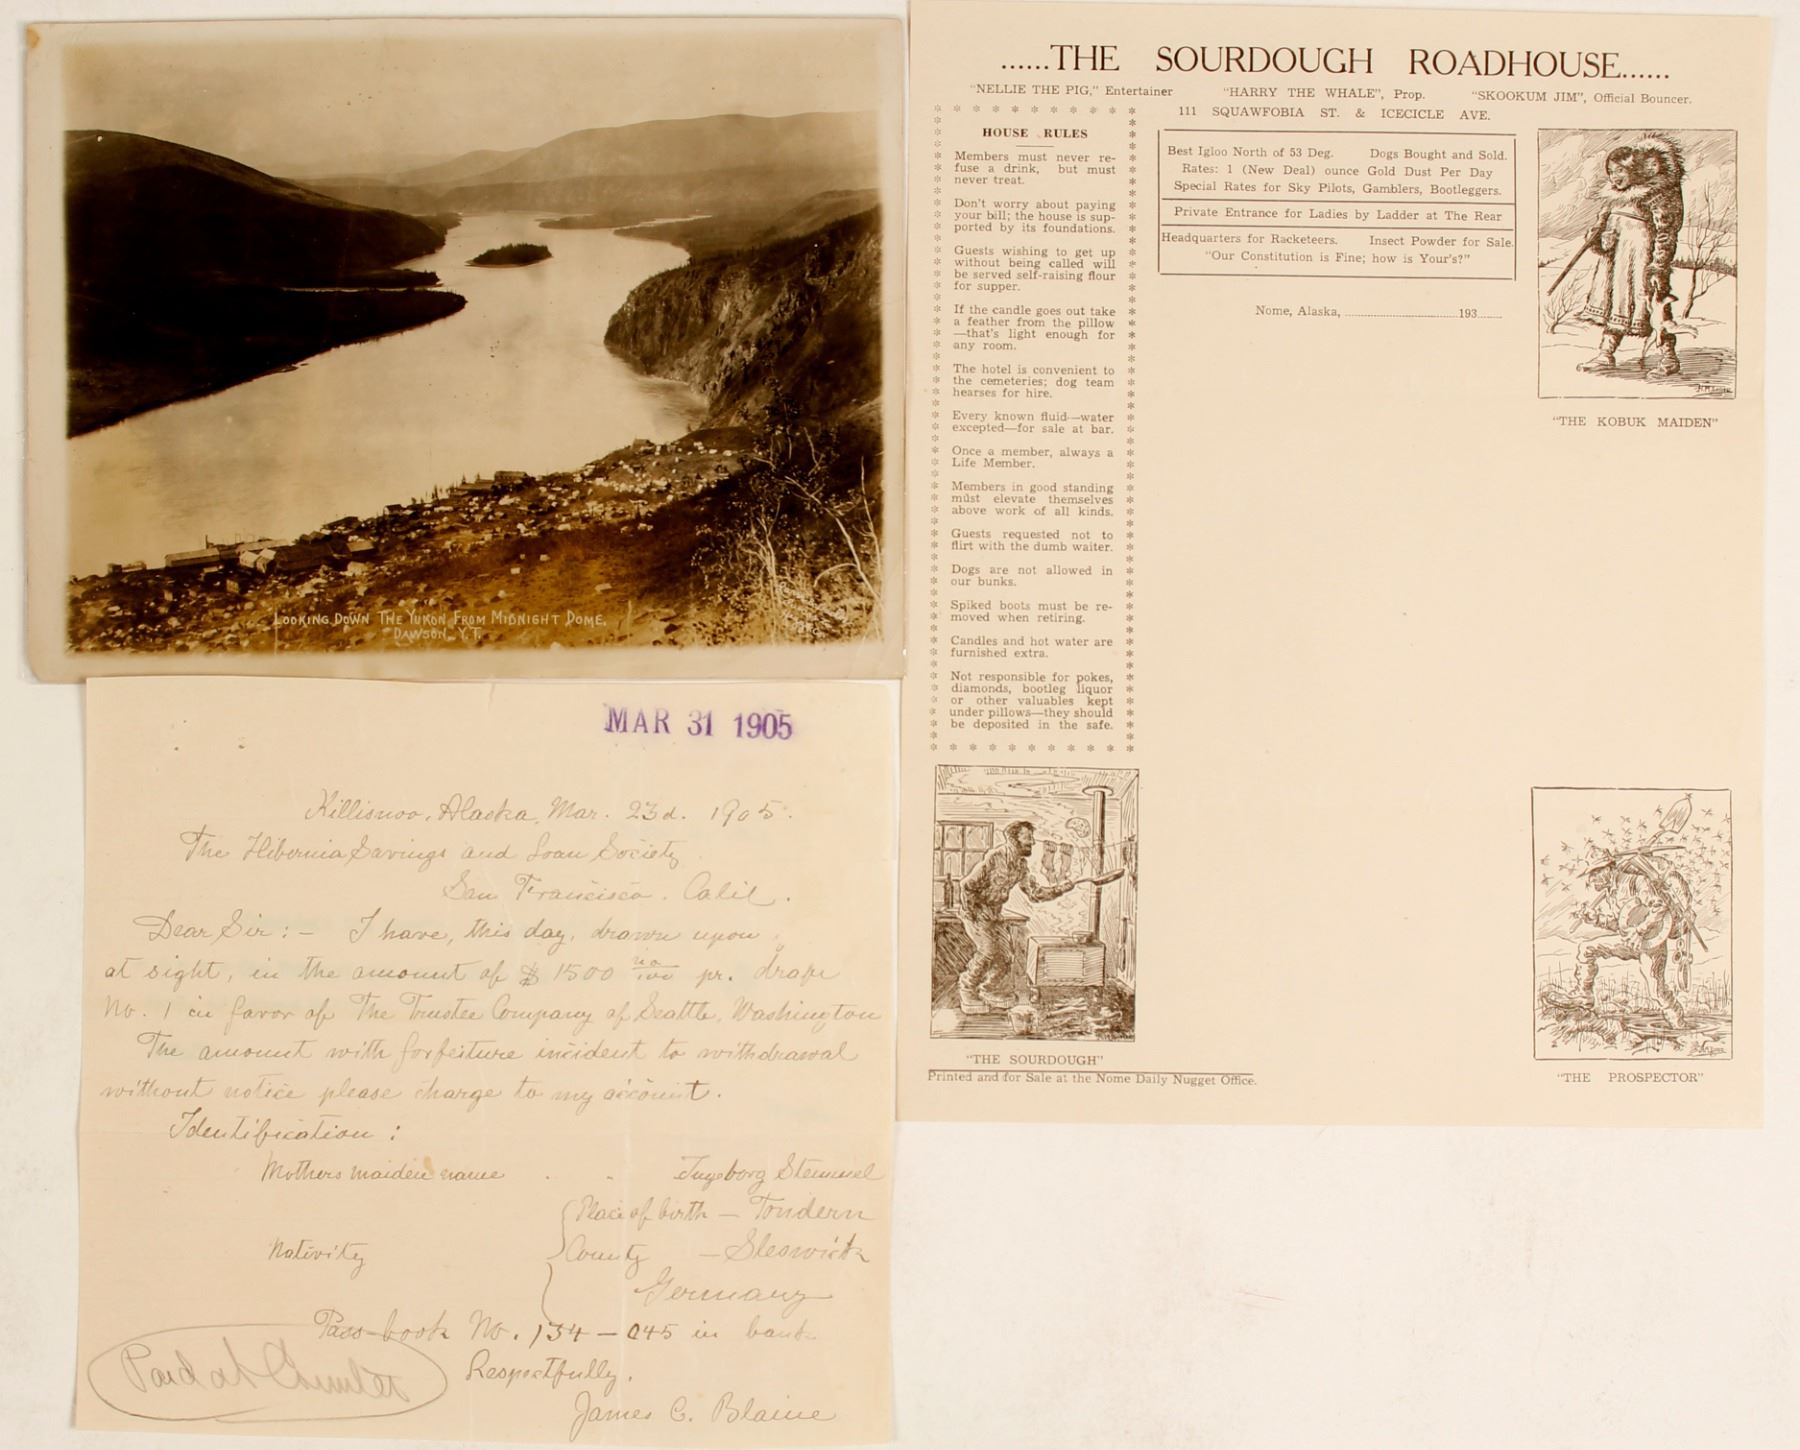 LOOKING DOWN THE YUKON FROM MIDNIGHT DOME,
DAWSON, Y.T.
......THE SOURDOUGH ROADHOUSE......
"NELLIE THE PIG," Entertainer "HARRY THE WHALE", Prop. "SKOOKUM JIM", Official Bouncer.
111 SQUAWFOBIA ST. & ICECICLE AVE.
HOUSE RULES
Members must never re-
fuse a drink, but must
never treat.
Don't worry about paying
your bill; the house is sup-
ported by its foundations.
Guests wishing to get up
without being called will
be served self-raising flour
for supper.
If the candle goes out take
a feather from the pillow
—that's light enough for
any room.
The hotel is convenient to
the cemeteries; dog team
hearses for hire.
Every known fluid—water
excepted—for sale at bar.
Once a member, always a
Life Member.
Members in good standing
must elevate themselves
above work of all kinds.
Guests requested not to
flirt with the dumb waiter.
Dogs are not allowed in
our bunks.
Spiked boots must be re-
moved when retiring.
Candles and hot water are
furnished extra.
Not responsible for pokes,
diamonds, bootleg liquor
or other valuables kept
under pillows—they should
be deposited in the safe.
Best Igloo North of 53 Deg. Dogs Bought and Sold.
Rates: 1 (New Deal) ounce Gold Dust Per Day
Special Rates for Sky Pilots, Gamblers, Bootleggers.
Private Entrance for Ladies by Ladder at The Rear
Headquarters for Racketeers. Insect Powder for Sale.
"Our Constitution is Fine; how is Your's?"
Nome, Alaska, ................................193.......
"THE KOBUK MAIDEN"
"THE SOURDOUGH"
"THE PROSPECTOR"
Printed and for Sale at the Nome Daily Nugget Office.
MAR 31 1905
Killisnoo, Alaska, Mar. 23d. 1905.
The Hibernia Savings and Loan Society
San Francisco. Calif.
Dear Sir:— I have, this day, drawn upon
at sight, in the amount of $1500 no/100 pr. draft
No. 1 in favor of The Trustee Company of Seattle, Washington
The amount with forfeiture incident to withdrawal
without notice please charge to my account.
Identification:
Mothers maiden name . . Ingeborg Stemmel
Place of birth — Tondern
Nativity County — Sleswick
Germany
Pass-book No. 134-045 in bank
Respectfully.
James C. Blaine
Paid at